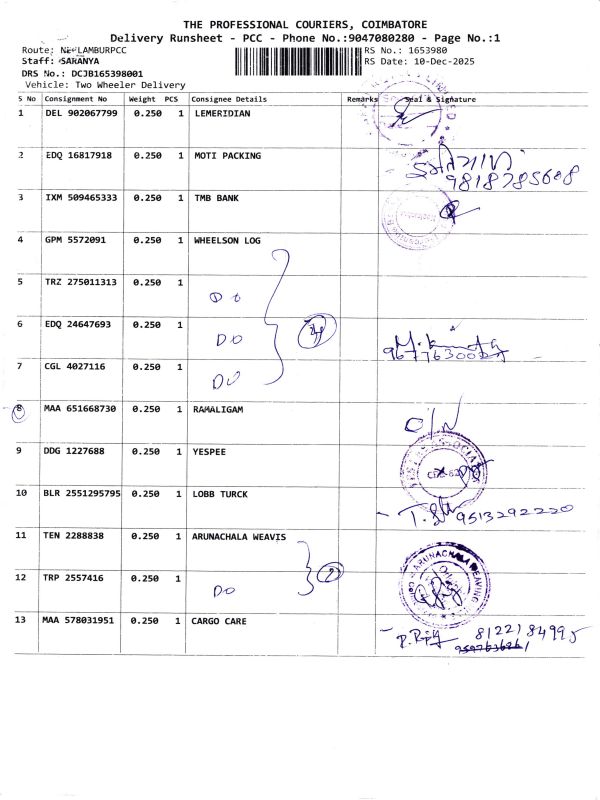 THE PROFESSIONAL COURIERS, COIMBATORE
Delivery Runsheet - PCC - Phone No.:9047080280 - Page No.:1
Route: NEELAMBURPCC
RS No.: 1653980
Staff: SARANYA
RS Date: 10-Dec-2025
DRS No.: DCJB165398001
Vehicle: Two Wheeler Delivery
S No Consignment No Weight PCS Consignee Details Remarks Seal & Signature
1 DEL 902067799 0.250 1 LEMERIDIAN
2 EDQ 16817918 0.250 1 MOTI PACKING
9818785688
3 IXM 509465333 0.250 1 TMB BANK
4 GPM 5572091 0.250 1 WHEELSON LOG
5 TRZ 275011313 0.250 1
DO
6 EDQ 24647693 0.250 1
DO
4
7 CGL 4027116 0.250 1
DO
8 MAA 651668730 0.250 1 RAMALIGAM
O/N
9 DDG 1227688 0.250 1 YESPEE
10 BLR 2551295795 0.250 1 LOBB TURCK
9513292220
11 TEN 2288838 0.250 1 ARUNACHALA WEAVIS
2
ARUNACHALA WEAVING
12 TRP 2557416 0.250 1
DO
13 MAA 578031951 0.250 1 CARGO CARE
8122184995